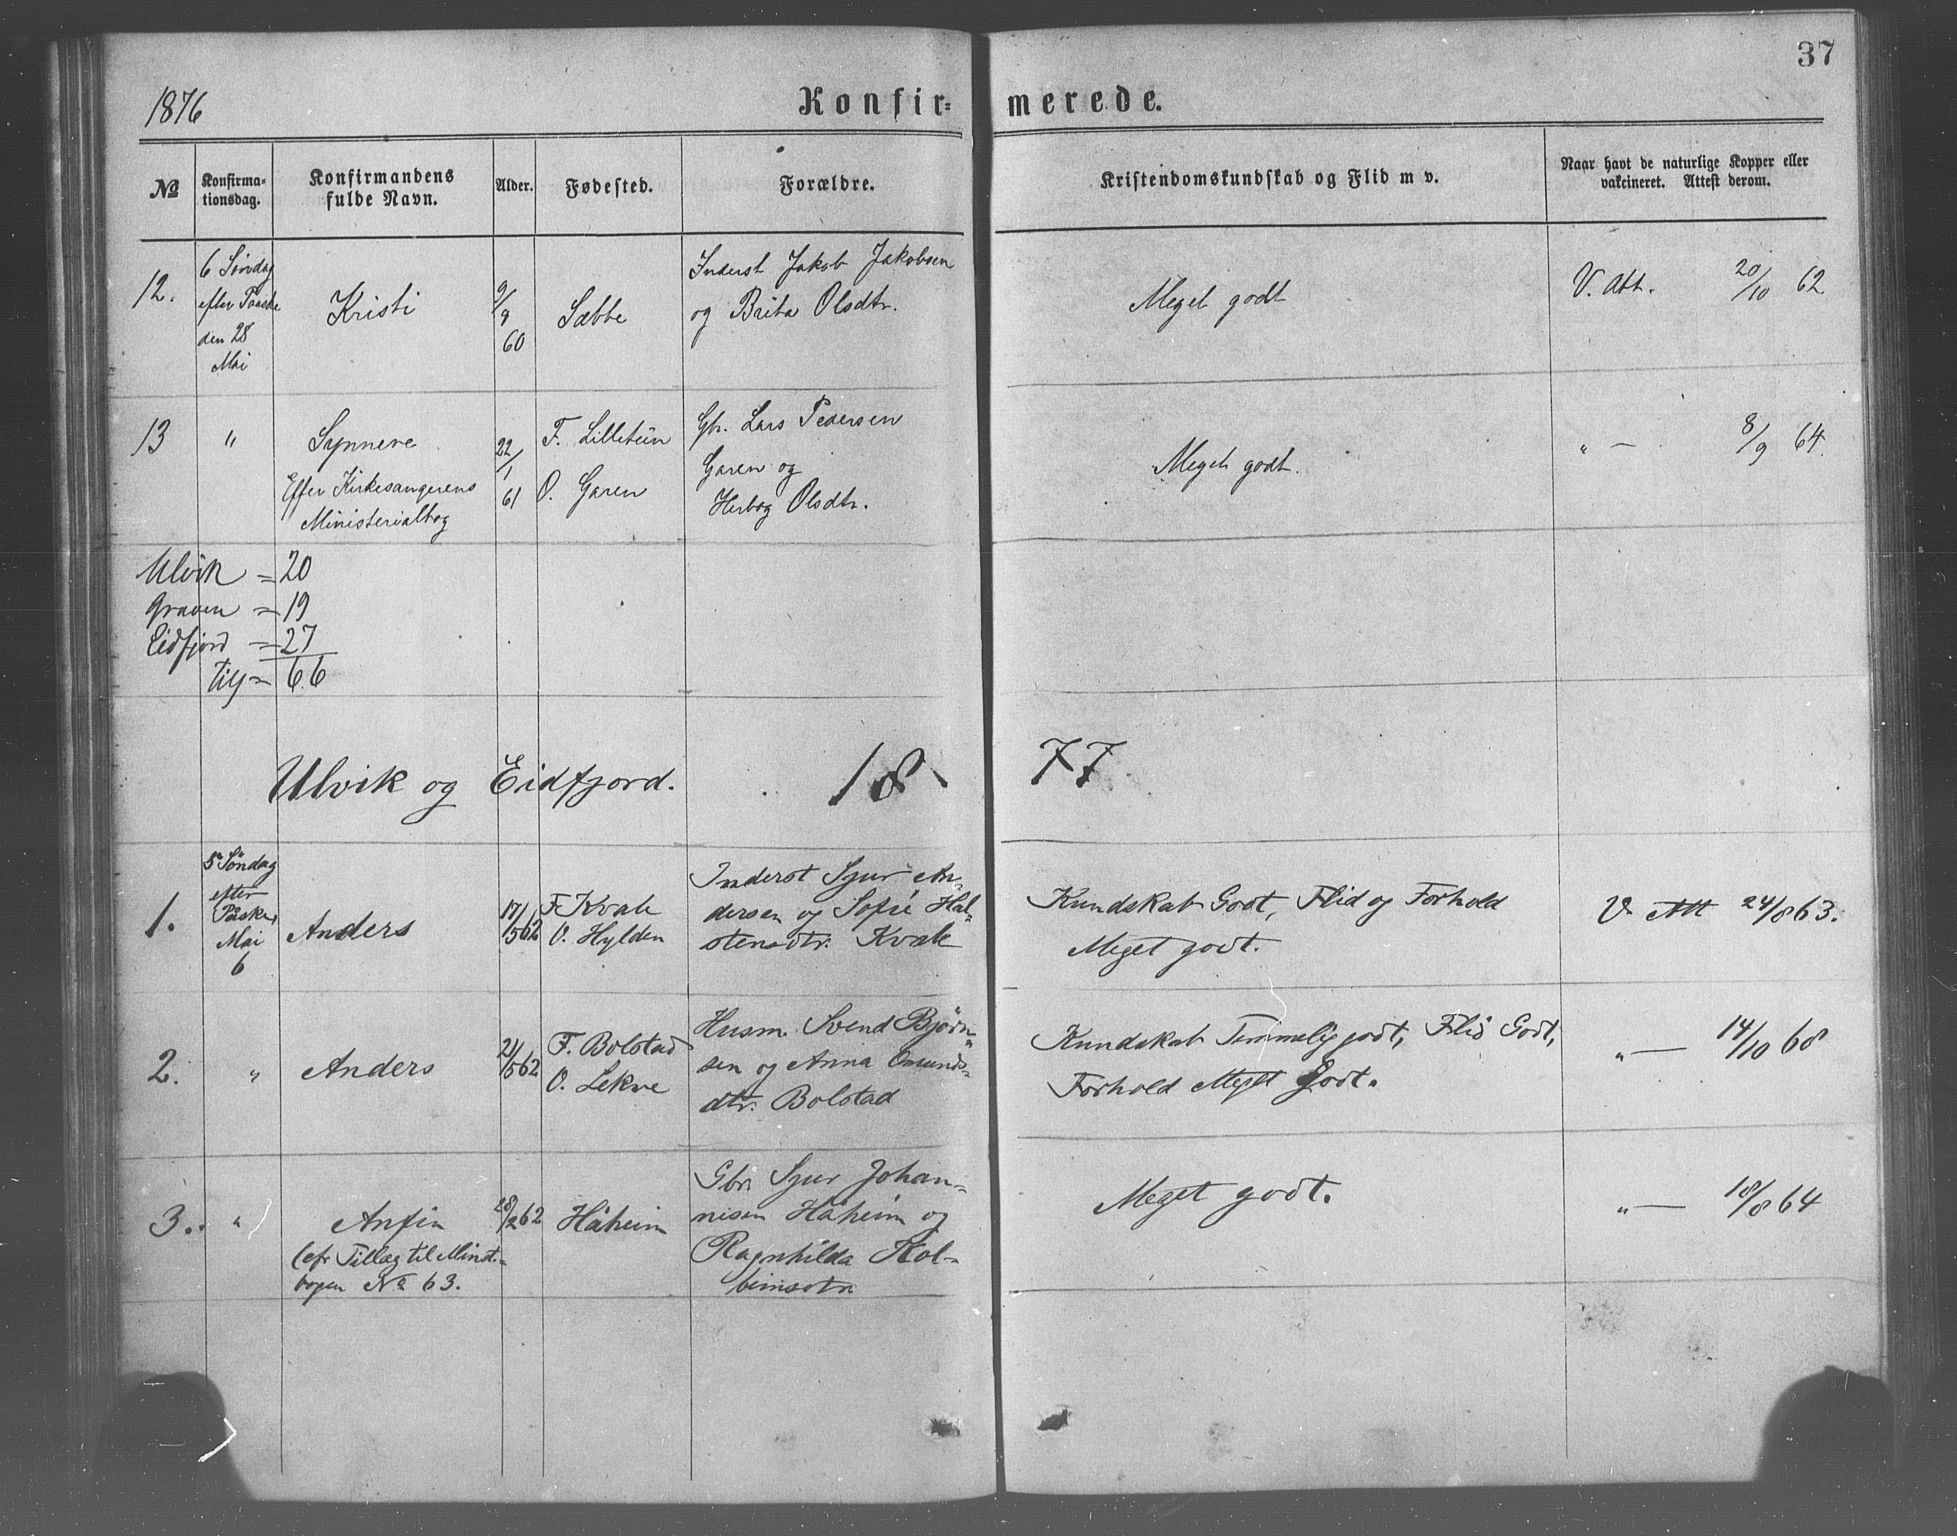 37
1876
Konfir=
merede.
No
Konfirma-
tionsdag.
Konfirmandens
fulde Navn.
Alder.
Fødested.
Forældre.
Kristendomskundskab og Flid m v.
Naar havt de naturlige Kopper eller
vakcineret. Attest derom.
12.
6 Søndag
efter Paaske
den 28
Mai
Kristi
9/9
60
Sæbbe
Inderst Jakob Jakobsen
og Brita Olsdtr.
Meget godt
V. Att. 20/10 62
13
"
Synneve
Efter Kirkesangerens
Ministerialbog
22/1
61
F. Lilletun
O. Garen
Gbr. Lars Pedersen
Garen og
Herbog Olsdtr.
Meget godt.
" — 8/9 64.
Ulvik = 20
Graven = 19
Eidfjord = 27
Tils = 66
Ulvik og Eidfjord. 18 77
1.
5 Søndag
efter
Påske,
Mai
6
Anders
17/5 62
F. Kvale
O. Hylden
Inderst Sjur An-
dersen og Sofie Hal-
stensdtr. Kvale
Kundskab Godt, Flid og Forhold
Meget godt.
V. Att 24/8 63.
2.
"
Anders
21/5 62
F. Bolstad
O. Lekve
Husm. Svend Bjørn-
sen og Anna Omunds-
dtr. Bolstad
Kundskab Temmelig godt, Flid Godt,
Forhold Meget Godt.
" — 14/10 68
3.
"
Anfin
(cfr Tillæg til Minst-
bogen No 63.
28/2 62
Håheim
Gbr. Sjur Johan-
nisen Håheim og
Ragnhilda Kol-
beinsdtr
Meget godt.
" — 18/8 64